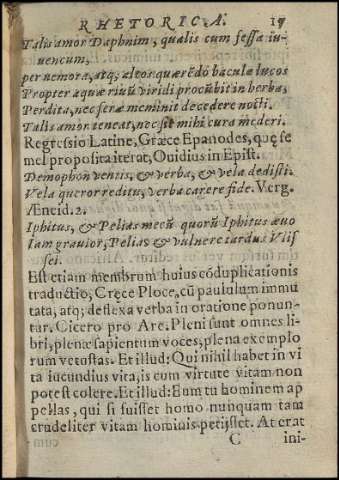 RHETORICA. 17
Talis amor Daphnim, qualis cum fessa iu-
uencum,
per nemora, atq; altos quærẽdo bacula lucos
Propter aquæ riuũ viridi procũbit in herba,
Perdita, nec seræ meminit decedere nocti.
Talis amor teneat, nec sit mihi cura mederi.
Regressio Latine, Græce Epanodes, quę se
mel proposita iterat, Ouidius in Epist.
Demophoñ ventis, & verba, & vela dedisti.
Vela queror reditu, verba carere fide. Verg.
Æneid. 2.
Iphitus, & Pelias mecũ quorũ Iphitus æuo
Iam grauior, Pelias & vulnere tardus Vlis
sei.
Est etiam membrum huius cõduplicationis
traductio, Gręce Ploce, cũ paululum immu
tata, atq; deflexa verba in oratione ponun-
tur. Cicero pro Arc. Pleni sunt omnes li-
bri, plenæ sapientum voces, plena exemplo
rum vetustas. Et illud: Qui nihil habet in vi
ta iucundius vita, is cum virtute vitam non
potest colere. Et illud: Eum tu hominem ap
pellas, qui si fuisset homo nunquam tam
crudeliter vitam hominis petijsset. At erat
C ini-